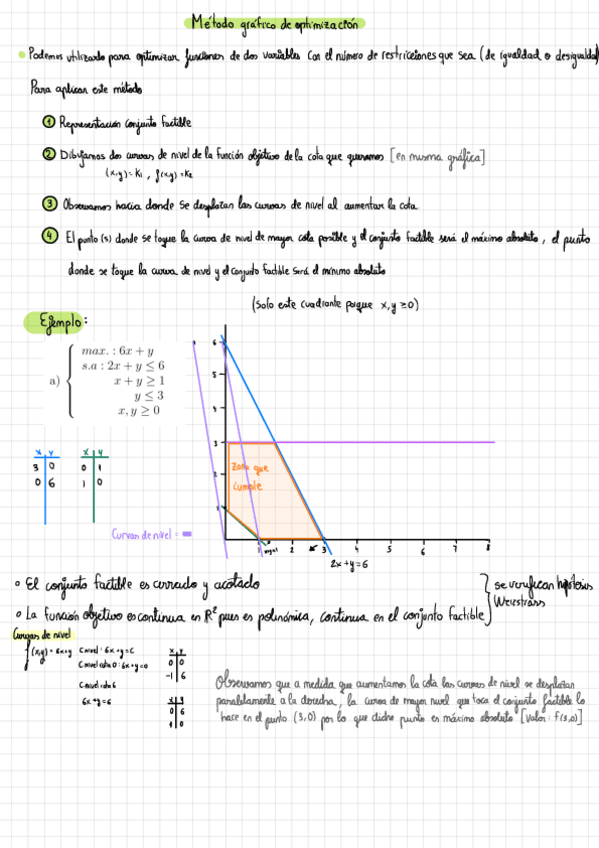 Método gráfico de optimización
Podemos utilizarlo para optimizar funciones de dos variables con el número de restricciones que sea (de igualdad o desigualdad)
Para aplicar este método
1 Representación conjunto factible
2 Dibujamos dos curvas de nivel de la función objetivo de la cota que queramos [en misma gráfica]
(x,y)=K1 , f(x,y)=K2
3 Observamos hacia donde se desplazan las curvas de nivel al aumentar la cota
4 El punto(s) donde se toque la curva de nivel de mayor cota posible y el conjunto factible será el máximo absoluto, el punto
donde se toque la curva de nivel y el conjunto factible será el mínimo absoluto
(Solo este cuadrante porque x,y ≥0)
Ejemplo:
a) { max. : 6x + y
s.a : 2x + y ≤ 6
x + y ≥ 1
y ≤ 3
x, y ≥ 0
x y x y
3 0 0 1
0 6 1 0
6
5
4
3
2
1
Zona que
cumple
Curvas de nivel =
1 2 3 4 5 6 7 8
2x+y=6
El conjunto factible es cerrado y acotado
La función objetivo es continua en R² pues es polinómica, continua en el conjunto factible
se verifican hipótesis
Weierstrass
Curvas de nivel
f(x,y) = 6x+y C nivel: 6x+y=C
C nivel cota 0: 6x+y=0
C nivel cota 6
6x+y=6
x y
0 0
-1 6
x y
0 6
1 0
Observamos que a medida que aumentamos la cota las curvas de nivel se desplazan
paralelamente a la derecha, la curva de mayor nivel que toca el conjunto factible lo
hace en el punto (3,0) por lo que dicho punto es máximo absoluto [valor: f(3,0)]